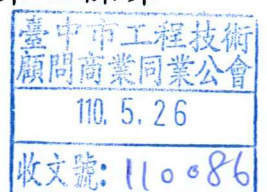 臺中市工程技術
顧問商業同業公會
110. 5. 26
收文號: 110086